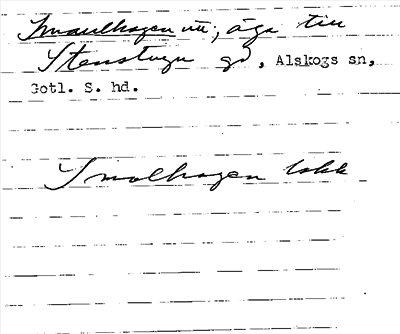 Smaulhagen ytt; äga till
Stenstugu gd, Alskogs sn,
Gotl. S. hd.
Smolhagen lokk